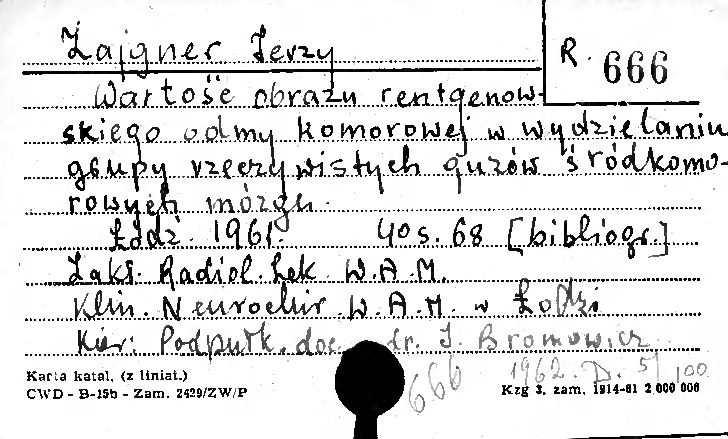 Zajgner Jerzy
R. 666
Wartość obrazu rentgenow-
skiego odmy komorowej w wydzielaniu
grupy rzeczywistych guzów śródkomo-
rowych mózgu.
Łódź. 1961. 40 s. 68 [bibliogr.]
Zakł. Radiol. Lek. W.A.M.
Klin. Neurochir. W.A.M. w Łodzi
Kier: Podpułk. doc. dr. J. Bromowicz
Karta katal. (z liniat.)
CWD - B-15b - Zam. 2429/ZW/P
666
1962. D. 51/100
Kzg 3, zam. 1914-61 2 000 000